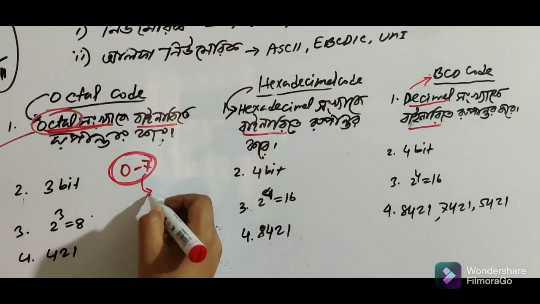 i) নিউমেরিক
ii) আলফা নিউমেরিক → ASCII, EBCDIC, UNI
Octal Code
1. Octal সংখ্যাকে বাইনারিতে
রূপান্তর করে।
0-7
2. 3 bit
3. 2³=8
4. 421
Hexadecimal code
1. Hexadecimal সংখ্যাকে
বাইনারিতে রূপান্তর
করে।
2. 4 bit
3. 2⁴=16
4. 8421
BCD Code
1. Decimal সংখ্যাকে
বাইনারিতে রূপান্তর করে।
2. 4 bit
3. 2⁴=16
4. 8421, 7421, 5421
Wondershare
FilmoraGo